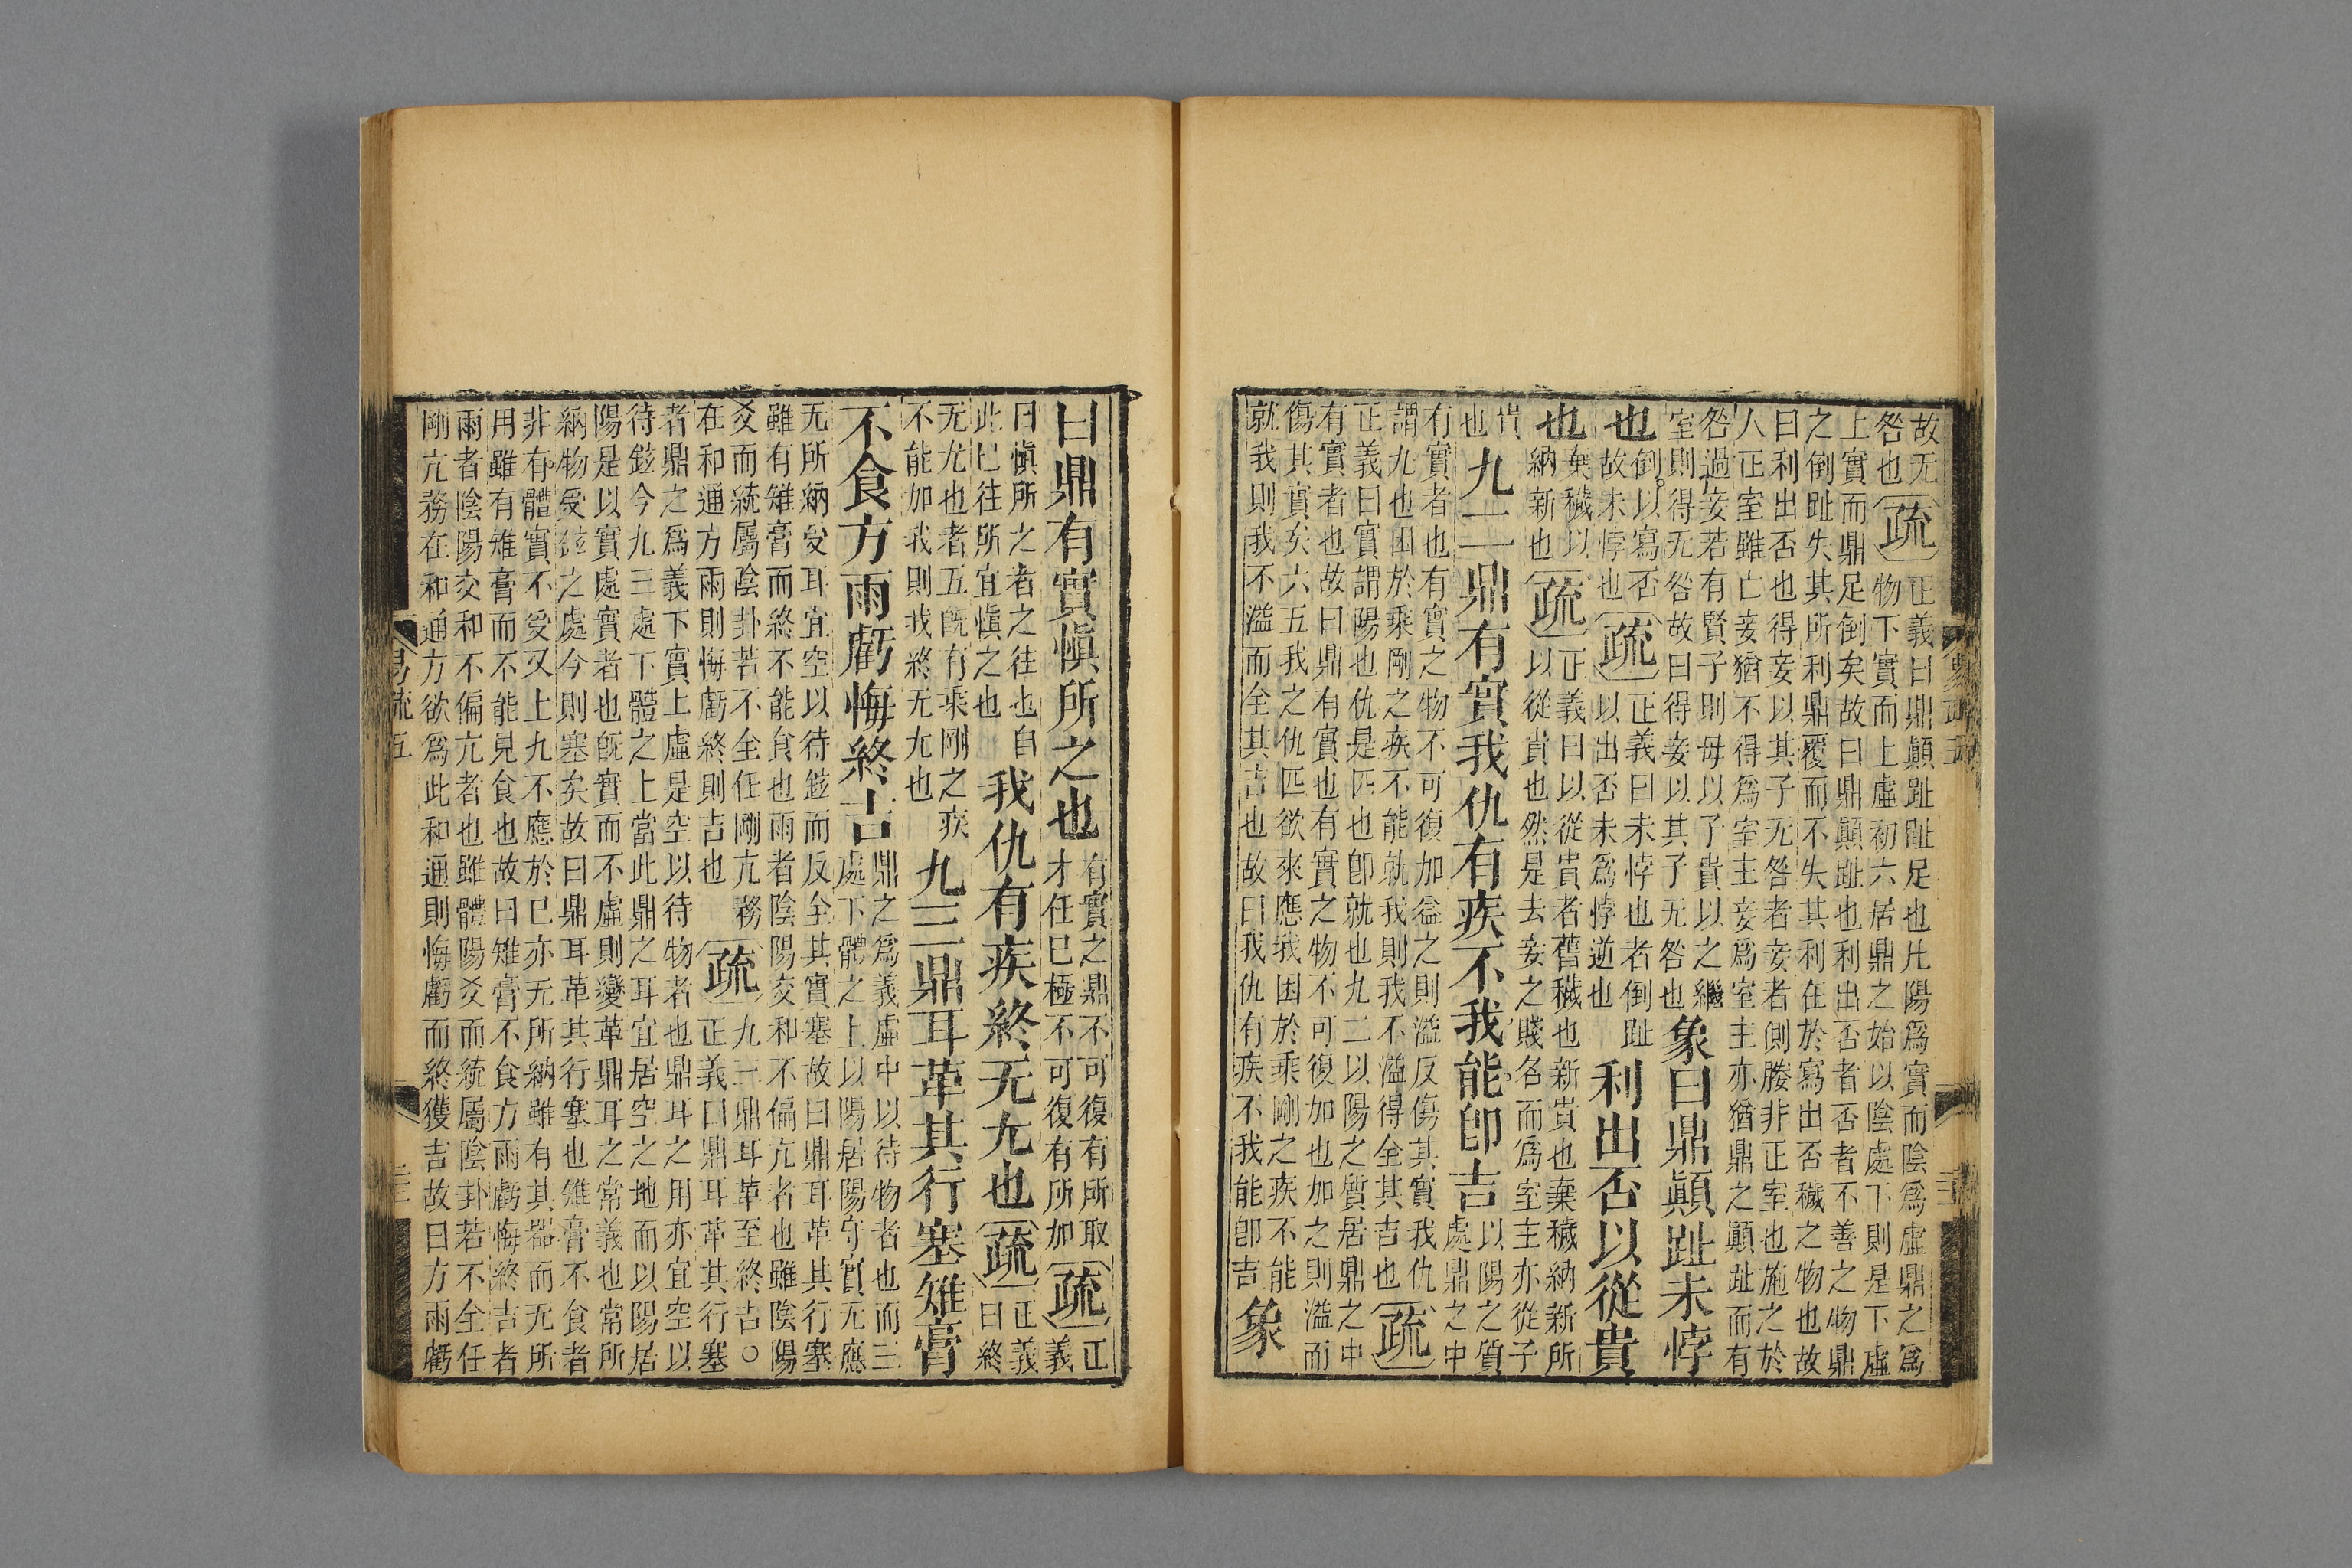 故无咎也疏正義曰鼎顛趾趾足也凡陽爲實而陰爲虛鼎之爲物下實而上虛初六居鼎之始以陰處下則是下虛
上實而鼎足倒矣故曰鼎顛趾也利出否者否者不善之物鼎
之倒趾失其所利鼎覆而不失其利在於寫出否穢之物也故
曰利出否也得妾以其子无咎者妾者側媵非正室也施之於
人正室雖亡妾猶不得爲室主妾爲室主亦猶鼎之顛趾而有
咎過妾若有賢子則母以子貴以之繼室則得无咎故曰得妾以其子无咎也象曰鼎顛趾未悖
也倒以寫否故未悖也疏正義曰未悖也者倒趾以出否未爲悖逆也利出否以從貴
也棄穢以納新也疏正義曰以從貴者舊穢也新貴也棄穢納新所以從貴也然是去妾之賤名而爲室主亦從子
貴也九二鼎有實我仇有疾不我能卽吉以陽之質處鼎之中
有實者也有實之物不可復加益之則溢反傷其實我仇謂九也困於乘剛之疾不能就我則我不溢得全其吉也疏
正義曰實謂陽也仇是匹也卽就也九二以陽之質居鼎之中
有實者也故曰鼎有實也有實之物不可復加也加之則溢而
傷其實矣六五我之仇匹欲來應我困於乘剛之疾不能就我則我不溢而全其吉也故曰我仇有疾不我能卽吉象
曰鼎有實愼所之也有實之鼎不可復有所取才任已極不可復有所加疏正義
曰愼所之者之往也自此已往所宜愼之也我仇有疾終无尤也疏正義曰終
无尤也者五旣有乘剛之疾不能加我則我終无尤也九三鼎耳革其行塞雉膏
不食方雨虧悔終吉鼎之爲義虛中以待物者也而三處下體之上以陽居陽守實无應
无所納受耳宜空以待鉉而反全其實塞故曰鼎耳革其行塞
雖有雉膏而終不能食也雨者陰陽交和不偏亢者也雖陰陽
爻而統屬陰卦若不全任剛亢務在和通方雨則悔虧終則吉也疏九三鼎耳革至終吉○正義曰鼎耳革其行塞
者鼎之爲義下實上虛是空以待物者也鼎耳之用亦宜空以
待鉉今九三處下體之上當此鼎之耳宜居空之地而以陽居
陽是以實處實者也旣實而不虛則變革鼎耳之常義也常所
納物受鉉之處今則塞矣故曰鼎耳革其行塞也雉膏不食者
非有體實不受又上九不應於已亦无所納雖有其器而无所
用雖有雉膏而不能見食也故曰雉膏不食方雨虧悔終吉者
雨者陰陽交和不偏亢者也雖體陽爻而統屬陰卦若不全任
剛亢務在和通方欲爲此和通則悔虧而終獲吉故曰方雨虧
易疏五